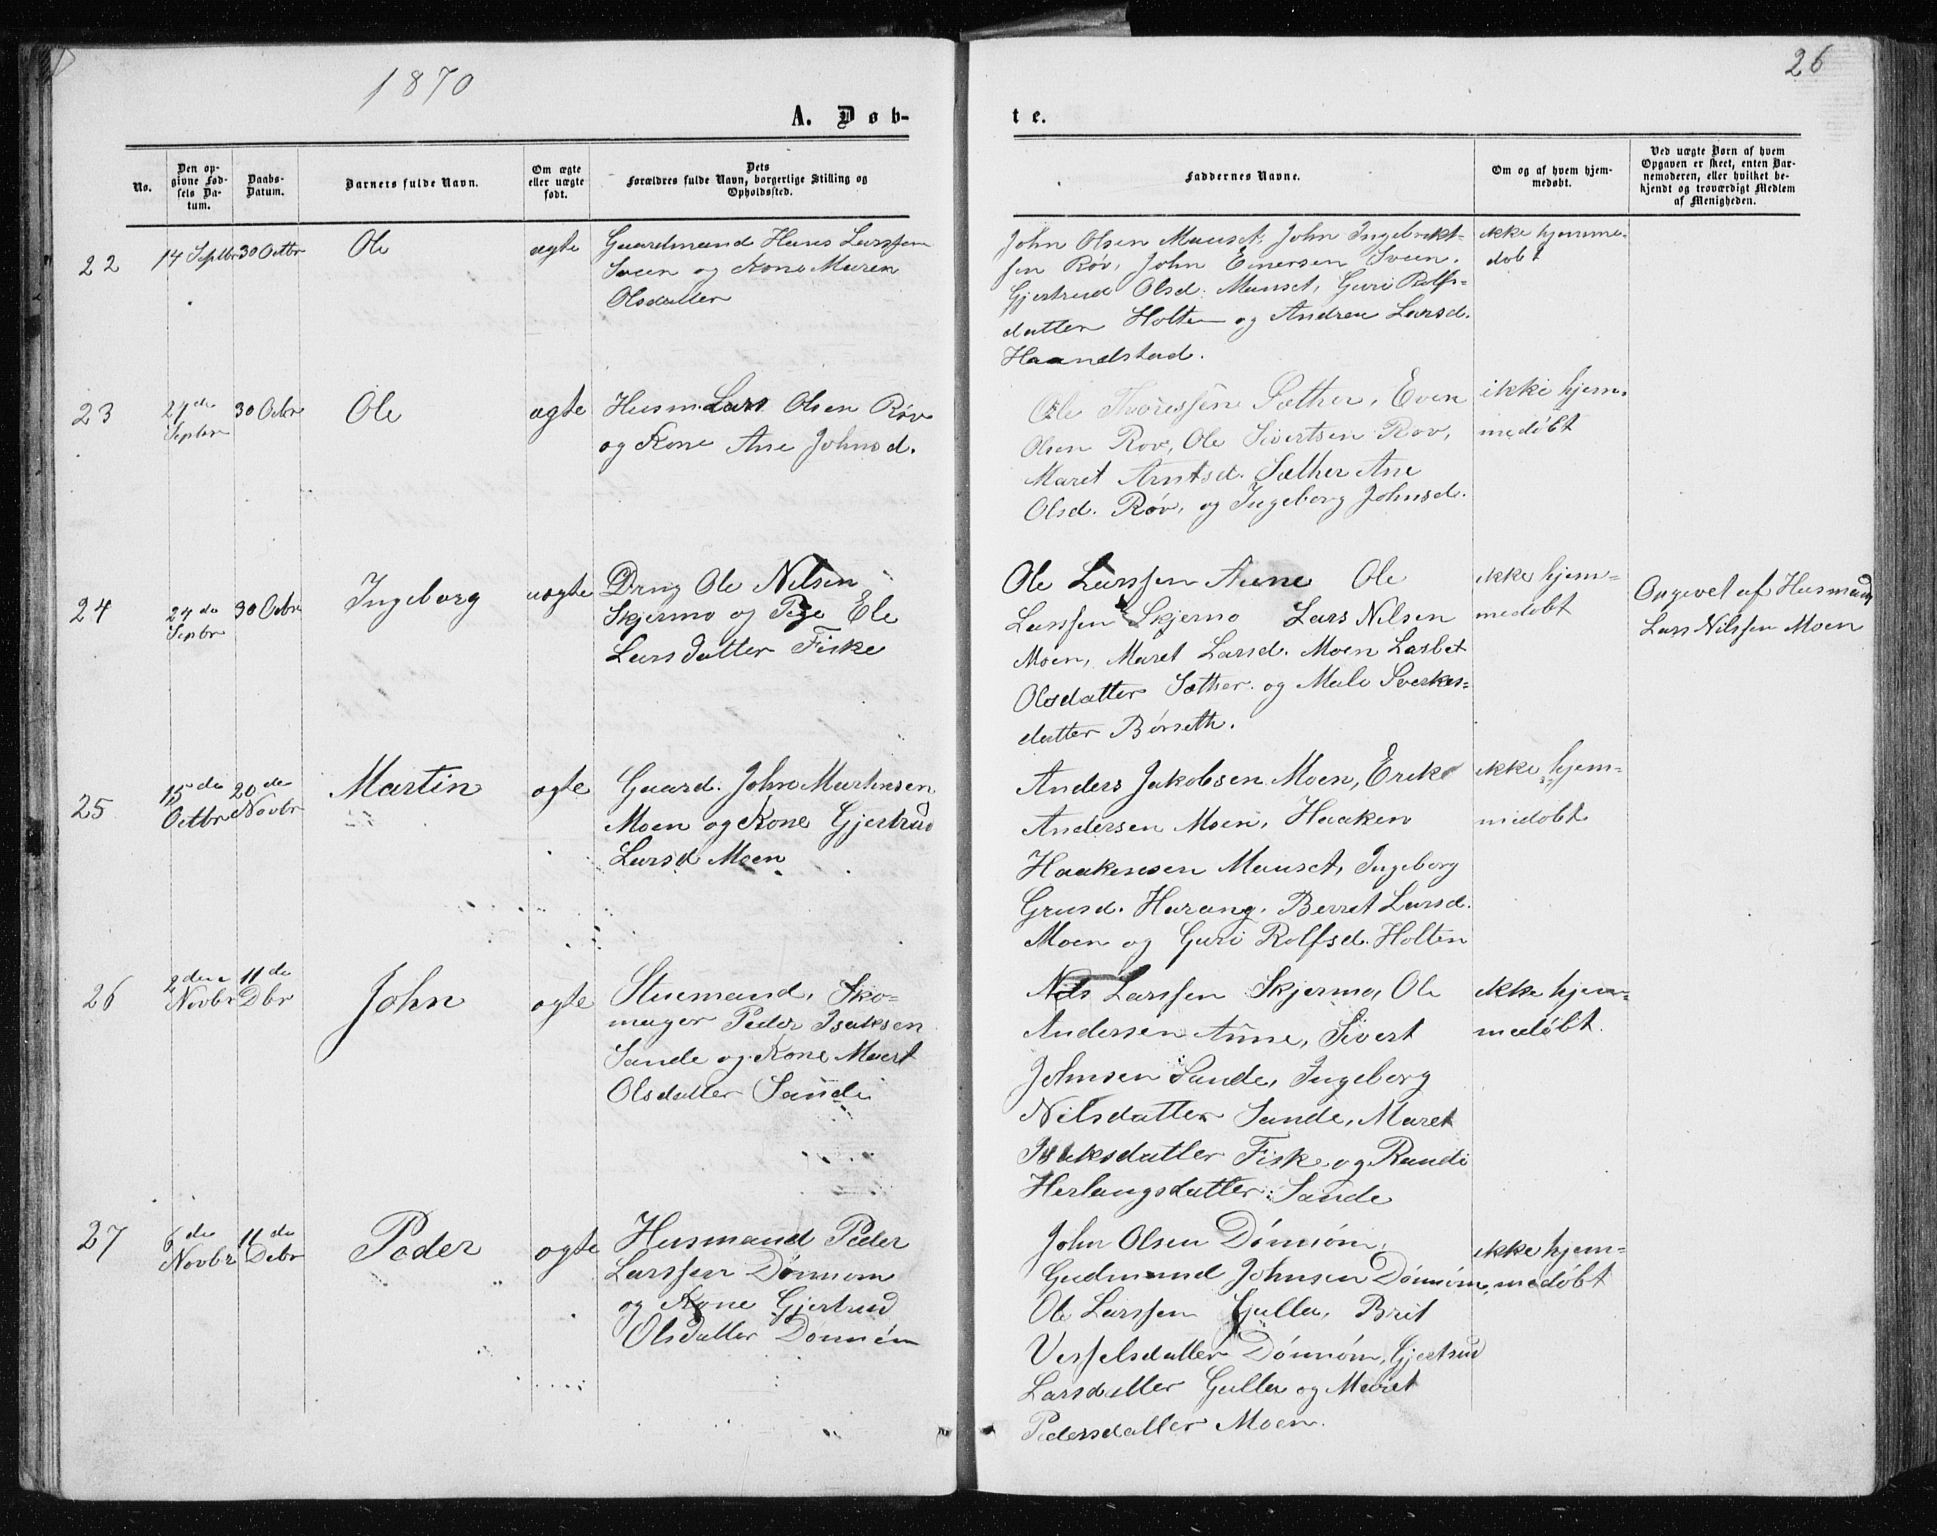 1870
26
A. Døb-
te.
No.
Den op-
givne Fød-
sels Da-
tum.
Daabs-
Datum.
Barnets fulde Navn.
Om ægte
eller uægte
født.
Dets
Forældres fulde Navn, borgerlige Stilling og
Opholdssted.
Faddernes Navne.
Om og af hvem hjem-
medøbt.
Ved uægte Børn af hvem
Opgaven er skeet, enten Bar-
nemoderen, eller hvilket be-
kjendt og troværdigt Medlem
af Menigheden.
22
14 Septbr
30 Octbr
Ole
ægte
Gaardmand Hans Larssen
Sveen og Kone Maren
Olsdatter
John Olsen Mauset, John Ingebrikt-
sen Røv, John Einersen Sveen,
Gjertrud Olsd. Mauset, Guri Rolfs-
datter Holten og Andrea Larsd.
Haandstad.
ikke hjemme-
døbt
23
Septbr
30 Octbr
Ole
ægte
Husm. Lars Olsen Røv
og Kone Ane Johnsd.
Ole Thoressen Sæther, Even
Olsen Røv, Ole Sivertsen Røv,
Maret Arntsd. Sæther Ane
Olsd. Røv, og Ingeborg Johnsd.
ikke hjem-
medøbt
24
24de
Sepbr
30 Octbr
Ingeborg
uægte
Drng Ole Nilsen
Skjermo og Pige Ele
Larsdatter Fiske
Ole Larssen Aune Ole
Larssen Skjermo Lars Nilsen
Moen, Maret Larsd. Moen Lasbet
Olsdatter Sæther og Male Sverkes-
datter Børseth.
ikke hjem-
medøbt
Opgivet af Husmand
Lars Nilssen Moen
25
15de
Octbr
20de
Novbr
Martin
ægte
Gaard. John Martinsen
Moen og Kone Gjertrud
Larsd Moen
Anders Jakobsen Moen, Erik
Andersen Moen, Haaken
Haakensen Mauset, Ingeborg
Grusd. Harang, Berret Larsd.
Moen og Guri Rolfsd. Holten
ikke hjem-
medøbt
26
2den
Novbr
11de
Dbr
John
ægte
Stuemand, Sko-
mager Peder Isaksen
Sande og Kone Maret
Olsdatter Sande
Nils Larssen Skjermo, Ole
Andersen Aune, Sivert
Johnsen Sande, Ingeborg
Nilsdatter Sande, Maret
Isaksdatter Fiske og Randi
Herlaugsdatter Sande
ikke hjem-
medøbt.
27
6de
Novbr
11de
Debr
Peder
ægte
Husmand Peder
Larssen Dønnøm
og Kone Gjertrud
Olsdatter Dønnøm
John Olsen Dønnøm,
Gudmund Johnsen Dønnøm,
Ole Larssen Gulla, Brit
Vesselsdatter Dønnøm, Gjertrud
Larsdatter Gulla og Maret
Pedersdatter Moen.
ikke hjem-
medøbt